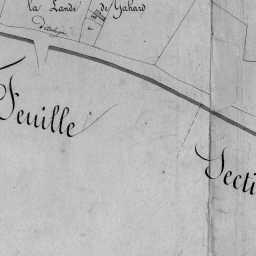 la Lande de Gahard
Feuille
Secti